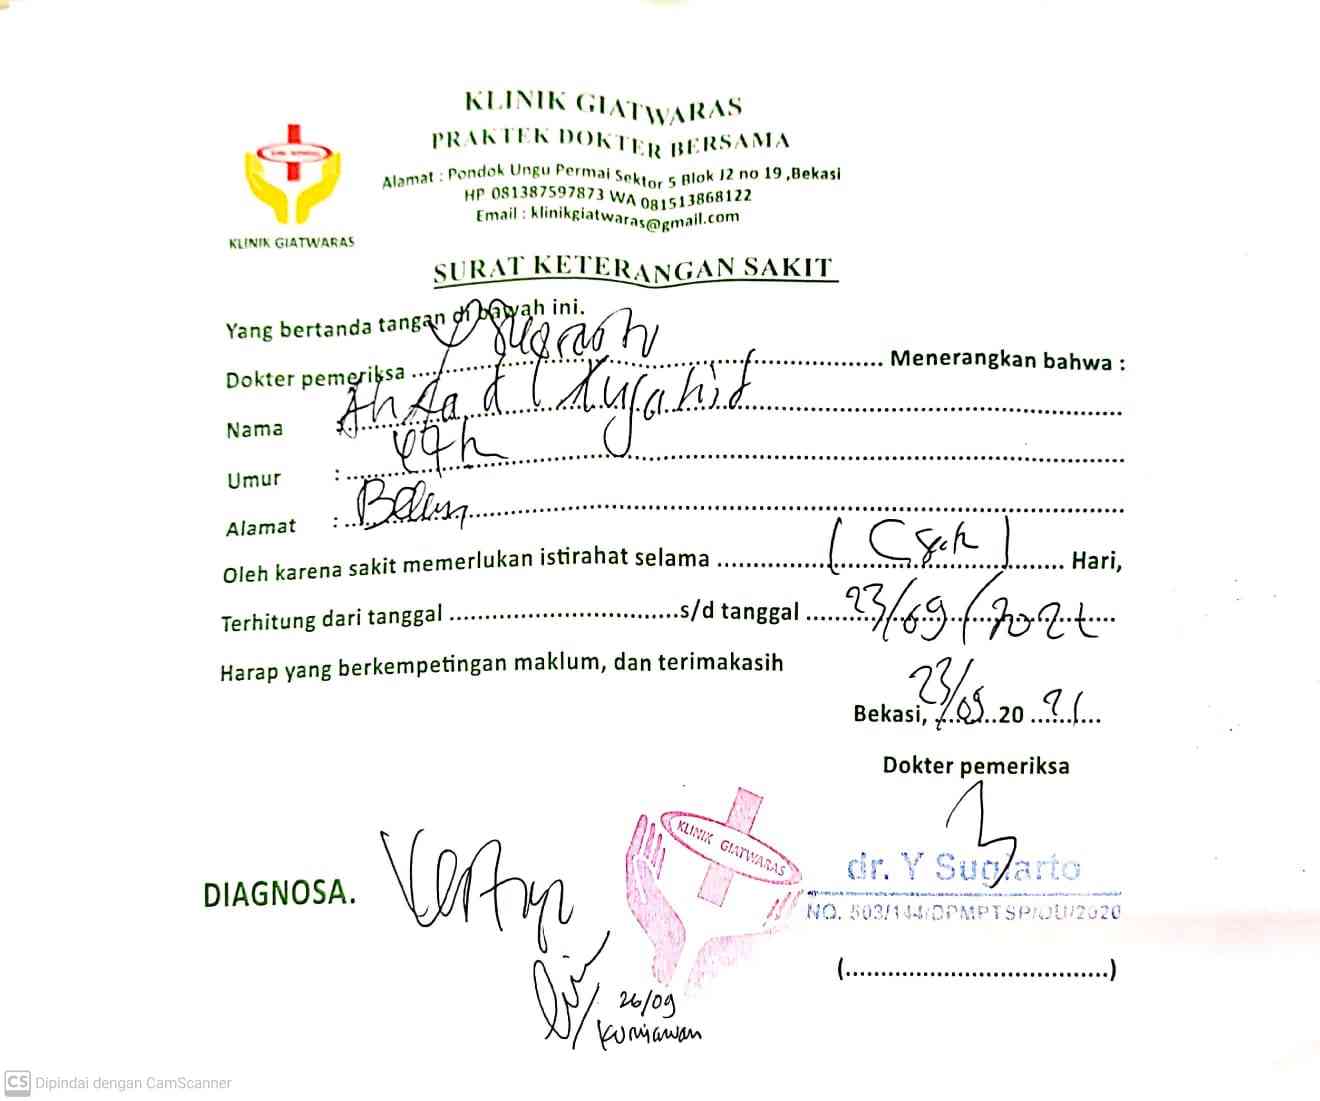 KLINIK GIATWARAS
PRAKTEK DOKTER BERSAMA
Alamat : Pondok Ungu Permai Sektor 5 Blok J2 no 19 ,Bekasi
HP 081387597873 WA 081513868122
Email : klinikgiatwaras@gmail.com
KLINIK GIATWARAS
SURAT KETERANGAN SAKIT
Yang bertanda tangan di bawah ini.
Dokter pemeriksa ........ Menerangkan bahwa :
Nama :
Umur :
Alamat :
Oleh karena sakit memerlukan istirahat selama ........ Hari,
Terhitung dari tanggal ........ s/d tanggal 23/09/2021
Harap yang berkempetingan maklum, dan terimakasih
Bekasi, 23/09 20 21
Dokter pemeriksa
KLINIK GIATWARAS
dr. Y Sugiarto
NO. 503/144/DPMPTSP/DU/2020
DIAGNOSA.
(........)
26/09
Kurniawan
CS Dipindai dengan CamScanner